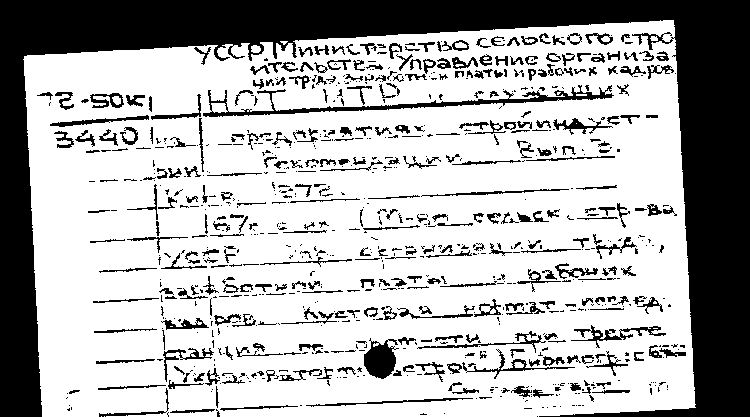 УССР Министерство сельского стро
ительства. Управление организа-
ции труда, заработной платы и рабочих кадров
72-50к
НОТ ИТР и служащих
3440
на предприятиях стройиндуст-
рии Рекомендации Вып. 3.
Киев, 1972.
67 с. ил. (М-во сельск. стр-ва
УССР Упр. организации труда,
заработной платы и рабочих
кадров. Кустовая нормат-исслед.
станция по пром-сти при тресте
"Укрэлеваторм строй.") Библиогр: с